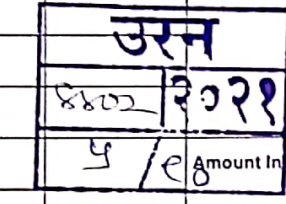 उरन
४४०२ २०२१
५ / ९०
Amount In